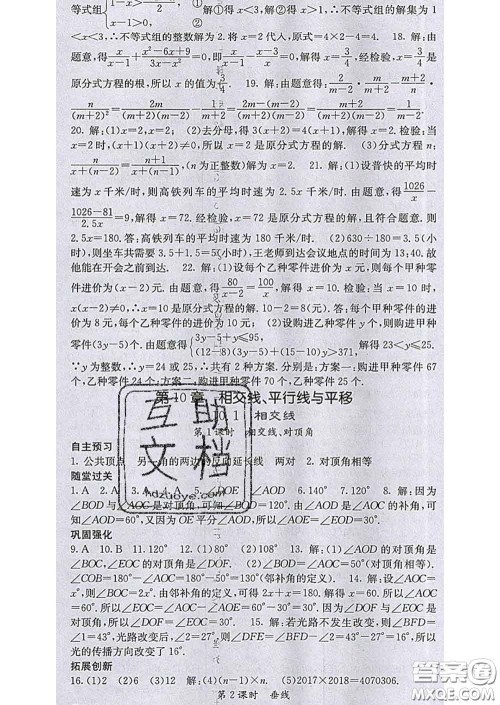 等式组 x-1>0, 解①得 x<3,解②得 x>1,∴不等式组的解集为 1
<x<3,∴不等式组的整数解为 2.将 x=2 代入,原式=4×2-4=4. 18. 解:由
题意,得 x/(x-1)+(x²-6x+9)/(3x-x²)=0,即 x/(x-1)-(x-3)/x=0,解得 x=3/4,经检验,x=3/4是
原分式方程的根,所以 x 的值为3/4. 19. 解:由题意得:2m/(m+2)·(m+2)/(m-2)·
n/(m+2)²=
20. 解:(1)x=2,x=2 (2)去分母,得 3(x+2)=4(x+1),解得 x=2.检验:当
x=2 时,(x+1)(x+2)≠0,所以 x=2 是原分式方程的解. (3)分式方程 n/x=
(n+1)/(x+(n-2)),(n 为正整数)解为 x=2. 21. 解:(1)设普快的平均时
速为 x 千米/时,则高铁列车的平均时速为 2.5x 千米/时.由题意,得1026/x-
(1026-81)/2.5x=9,解得 x=72.经检验,x=72 是原分式方程的解,且符合题意.则
2.5x=180.答:高铁列车的平均时速为 180 千米/时. (2)630÷180=3.5(小
时),则坐车共需要 3.5+1.5=5(小时),王老师到达会议地点的时间为 13:40.故
他能在开会之前到达. 22. 解:(1)设每个乙种零件进价为 x 元,则每个甲种零
件进价为(x-2)元.由题意,得80/(x-2)=100/x,解得 x=10.检验:当 x=10 时,
x(x-2)≠0,∴x=10 是原分式方程的解.10-2=8(元).答:每个甲种零件的进
价为 8 元,每个乙种零件的进价为 10 元; (2)设购进乙种零件 y 个,则购进甲种
零件(3y-5)个.由题意得{3y-5+y≤95, (12-8)(3y-5)+(15-10)y>371, 解得 23<y≤25.
∵y 为整数,∴y=24 或 25,∴共有 2 种方案.分别是:方案一:购进甲种零件 67
个,乙种零件 24 个;方案二:购进甲种零件 70 个,乙种零件 25 个.
第 10 章 相交线、平行线与平移
10.1 相交线
第 1 课时 相交线、对顶角
自主预习
1. 公共顶点 另一角的两边的反向延长线 两对 2. 对顶角相等
随堂过关
1. A 2. A 3. A 5. ∠DOE ∠AOD 6.140° 7.160° 8. 解:因为
∠BOD 与∠AOC 是对顶角,可知∠BOD=120°.由∠AOD 是∠AOC 的补角,可
知∠AOD=60°,又因为 OE 平分∠AOD,所以∠AOE=∠EOD=30°.
巩固强化
9. A 10. B 11.120° 12.(1)80° (2)108° 13. 解:(1)∠AOD 的对顶角是
∠BOC,∠EOC 的对顶角是∠DOF. (2)∠BOD=∠AOC=50°(对顶角相等).
∠COB=180°-∠AOC=180°-50°=130°(邻补角的定义). 14. 解:设∠AOC=
x°,则∠BOC=2x°.由邻补角的定义,可得 2x+x=180.解得 x=60.所以∠AOC
=60°.所以∠EOC=∠AOC-∠AOE=60°-30°=30°.因为∠DOF 与∠EOC 是
对顶角,所以∠DOF=∠EOC=30°. 15. 解:若光路不发生改变,则∠BFD=
∠1=43°,光路改变后,∠2=27°,则∠DFE=∠BFD-∠2=43°-27°=16°.所以
光的传播方向改变了 16°.
拓展创新
16.(1)2 (2)6 (3)12 解:(4)(n-1)×n. (5)2017×2018=4070306.
第 2 课时 垂线
互助文档
hdzuoye.com
作业帮